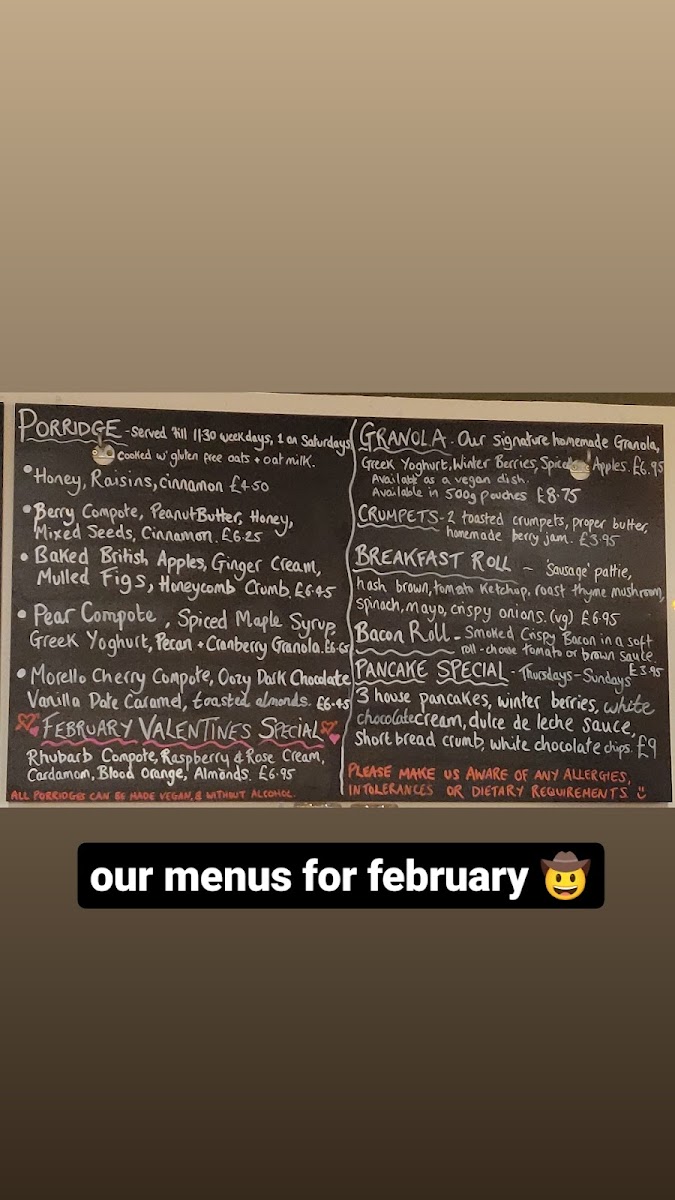 PORRIDGE - Served 'till 11:30 weekdays, 1 on Saturdays
Cooked w/ gluten free oats + oat milk.
• Honey, Raisins, Cinnamon £4.50
• Berry Compote, Peanut Butter, Honey,
Mixed Seeds, Cinnamon. £6.25
• Baked British Apples, Ginger Cream,
Mulled Figs, Honeycomb Crumb. £6.45
• Pear Compote, Spiced Maple Syrup,
Greek Yoghurt, Pecan + Cranberry Granola.
• Morello Cherry Compote, Oozy Dark Chocolate
Vanilla Date Caramel, toasted almonds. £6.45
FEBRUARY VALENTINES SPECIAL
Rhubarb Compote, Raspberry & Rose Cream,
Cardamon, Blood Orange, Almonds. £6.95
ALL PORRIDGES CAN BE MADE VEGAN, & WITHOUT ALCOHOL.
GRANOLA - Our signature homemade Granola,
Greek Yoghurt, Winter Berries, Apples. £6.95
Available as a vegan dish.
Available in 500g Pouches £8.75
CRUMPETS - 2 toasted crumpets, proper butter,
homemade berry jam. £3.95
BREAKFAST ROLL - 'Sausage' pattie,
hash brown, tomato ketchup, roast thyme mushroom,
spinach, mayo, crispy onions. (vg) £6.95
Bacon Roll - Smoked Crispy Bacon in a soft
roll - choose tomato or brown sauce.
£3.95
PANCAKE SPECIAL - Thursdays - Sundays
3 house pancakes, winter berries, white
chocolate cream, dulce de leche sauce,
short bread crumb, white chocolate chips. £9
PLEASE MAKE US AWARE OF ANY ALLERGIES,
INTOLERANCES OR DIETARY REQUIREMENTS
our menus for february 🤠